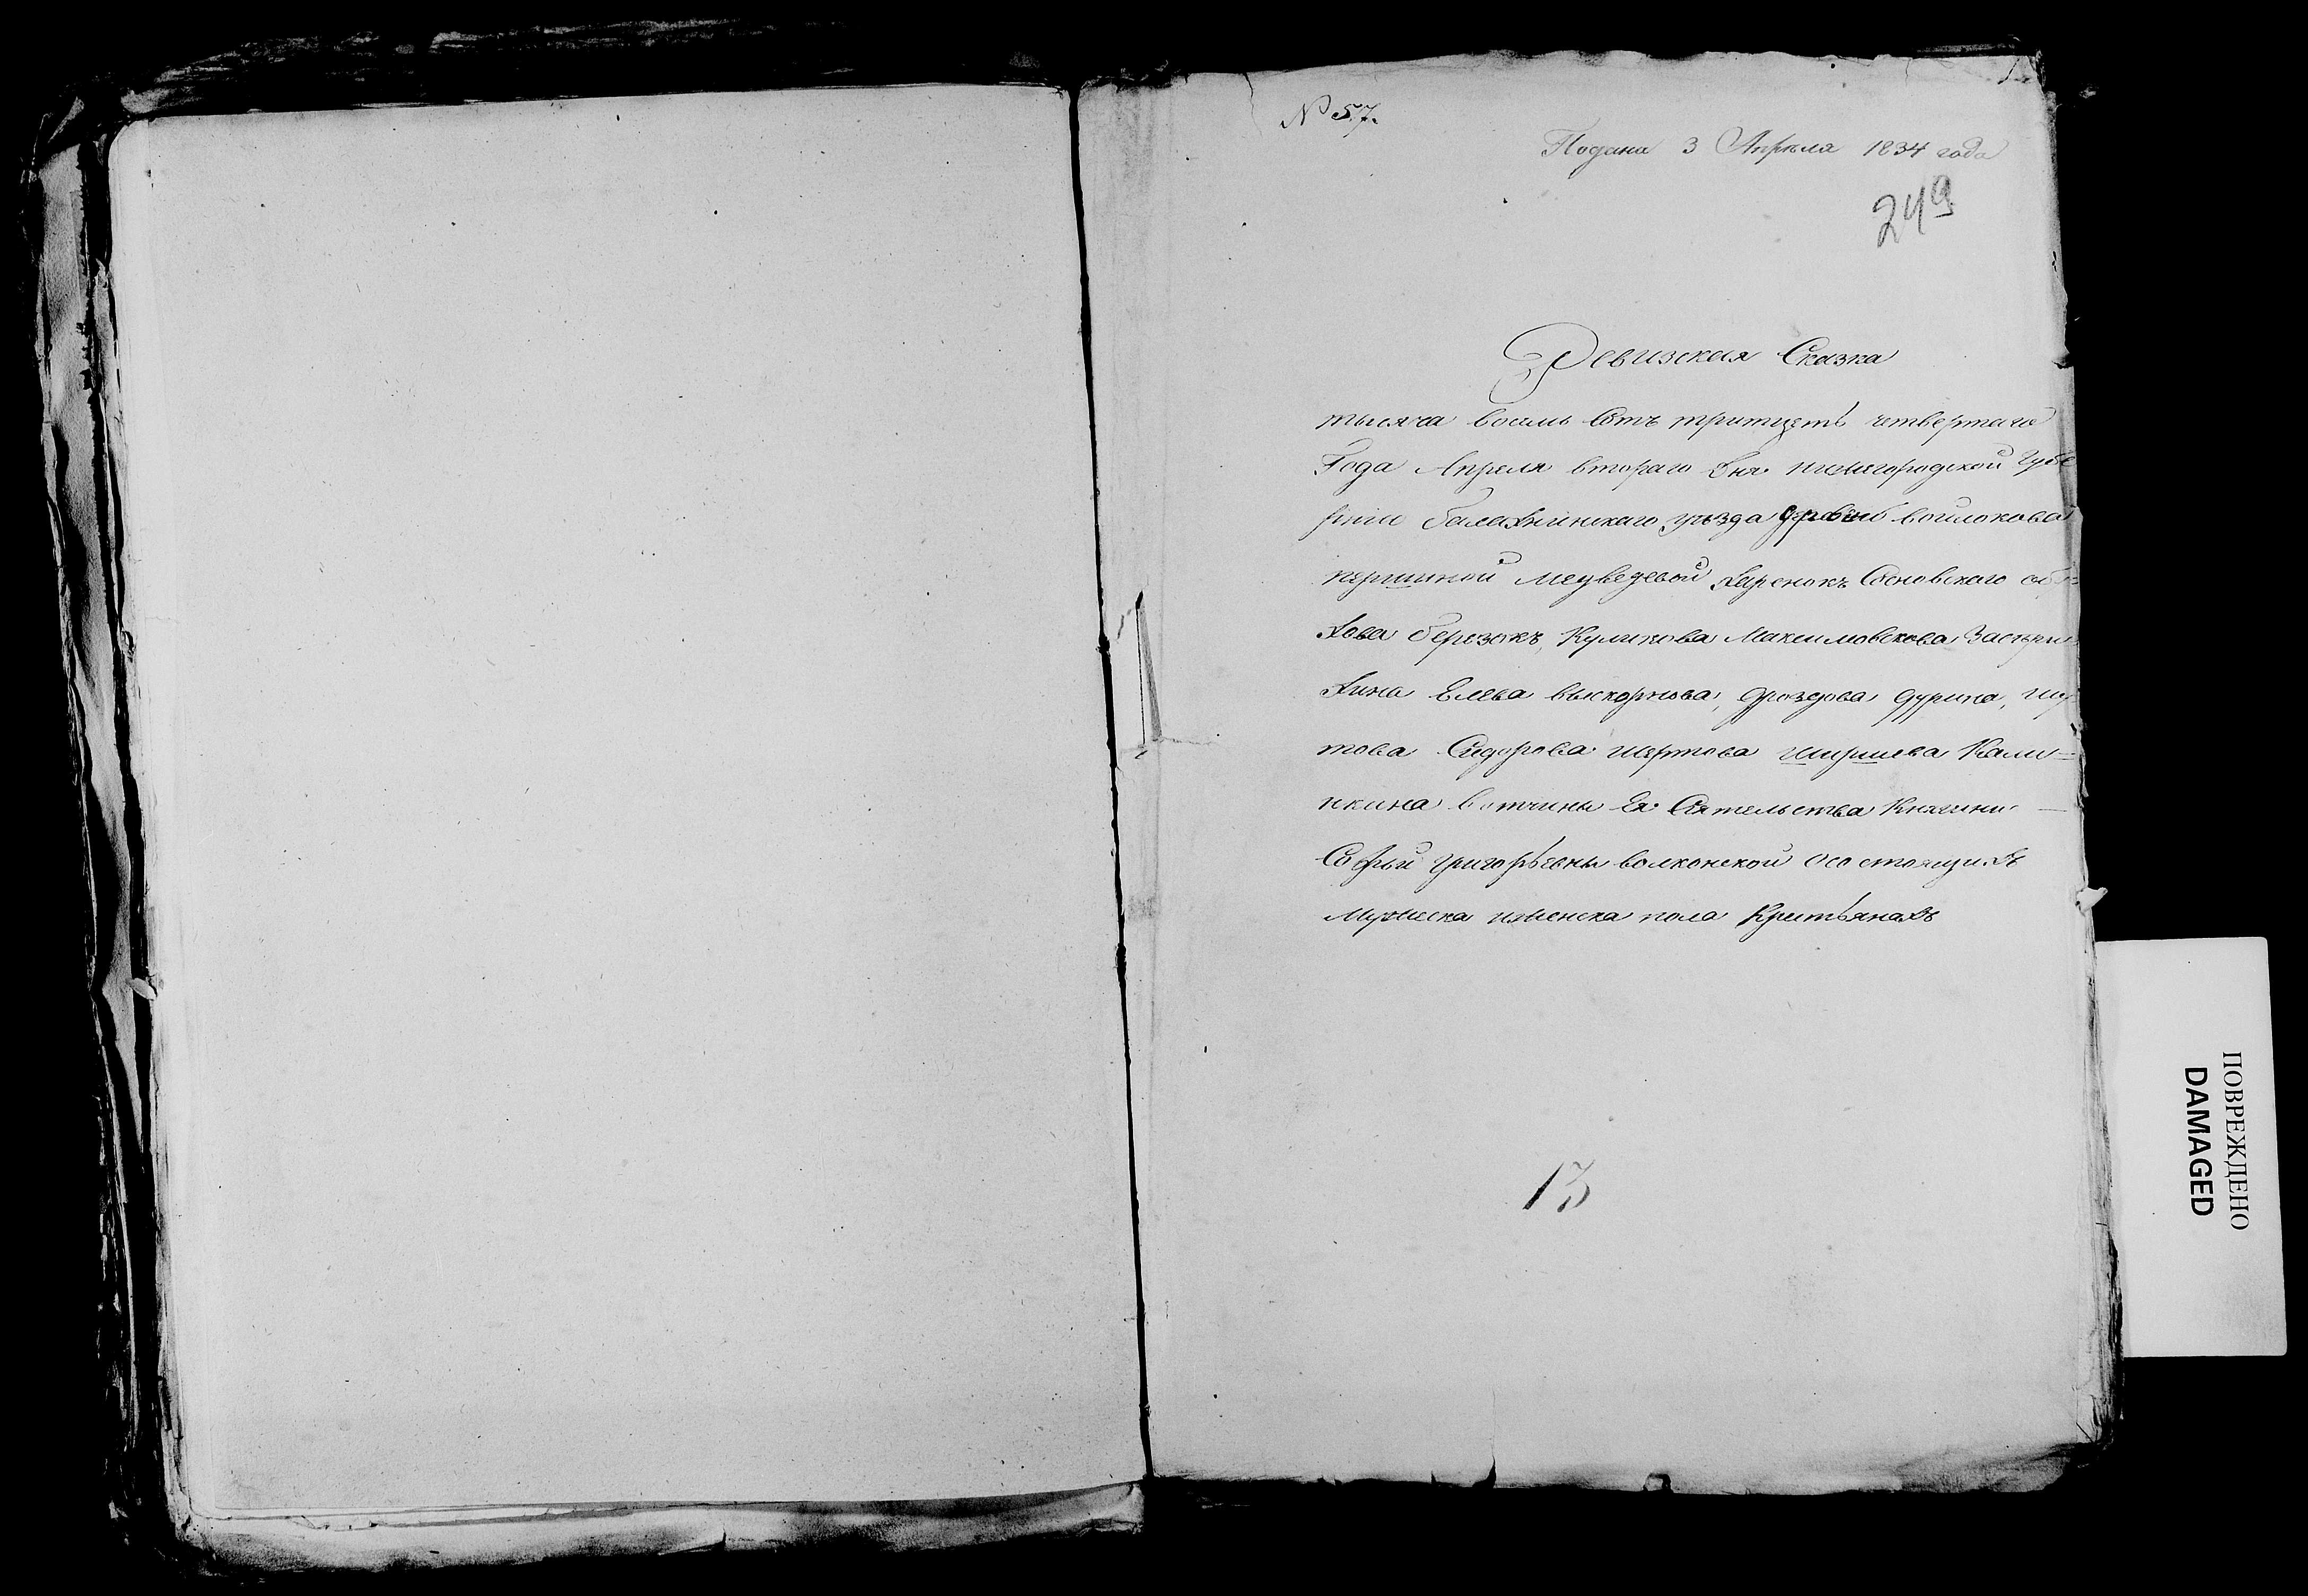 № 57.
Подана 3 Апреля 1834 года
249
Ревизская Сказка
тысяча восемь сотъ тритцеть четвертаго
Года Апреля втораго дня нижегородской Губе
рнии балахнинскаго уезда деревень воилокова
першиной медведевой харенокъ Сосновскаго
хова березокъ, Куликова Максимовскова
хина Елева выкорнова, дроздова дурина,
това Сидорова шертова ширшева Кали=
нкина вотчины Ея Сиятельства Княгини
Софьи григорьевны волконской осостоящихъ
Мужеска иженска пола Крстьянахъ
13
ПОВРЕЖДЕНО
DAMAGED